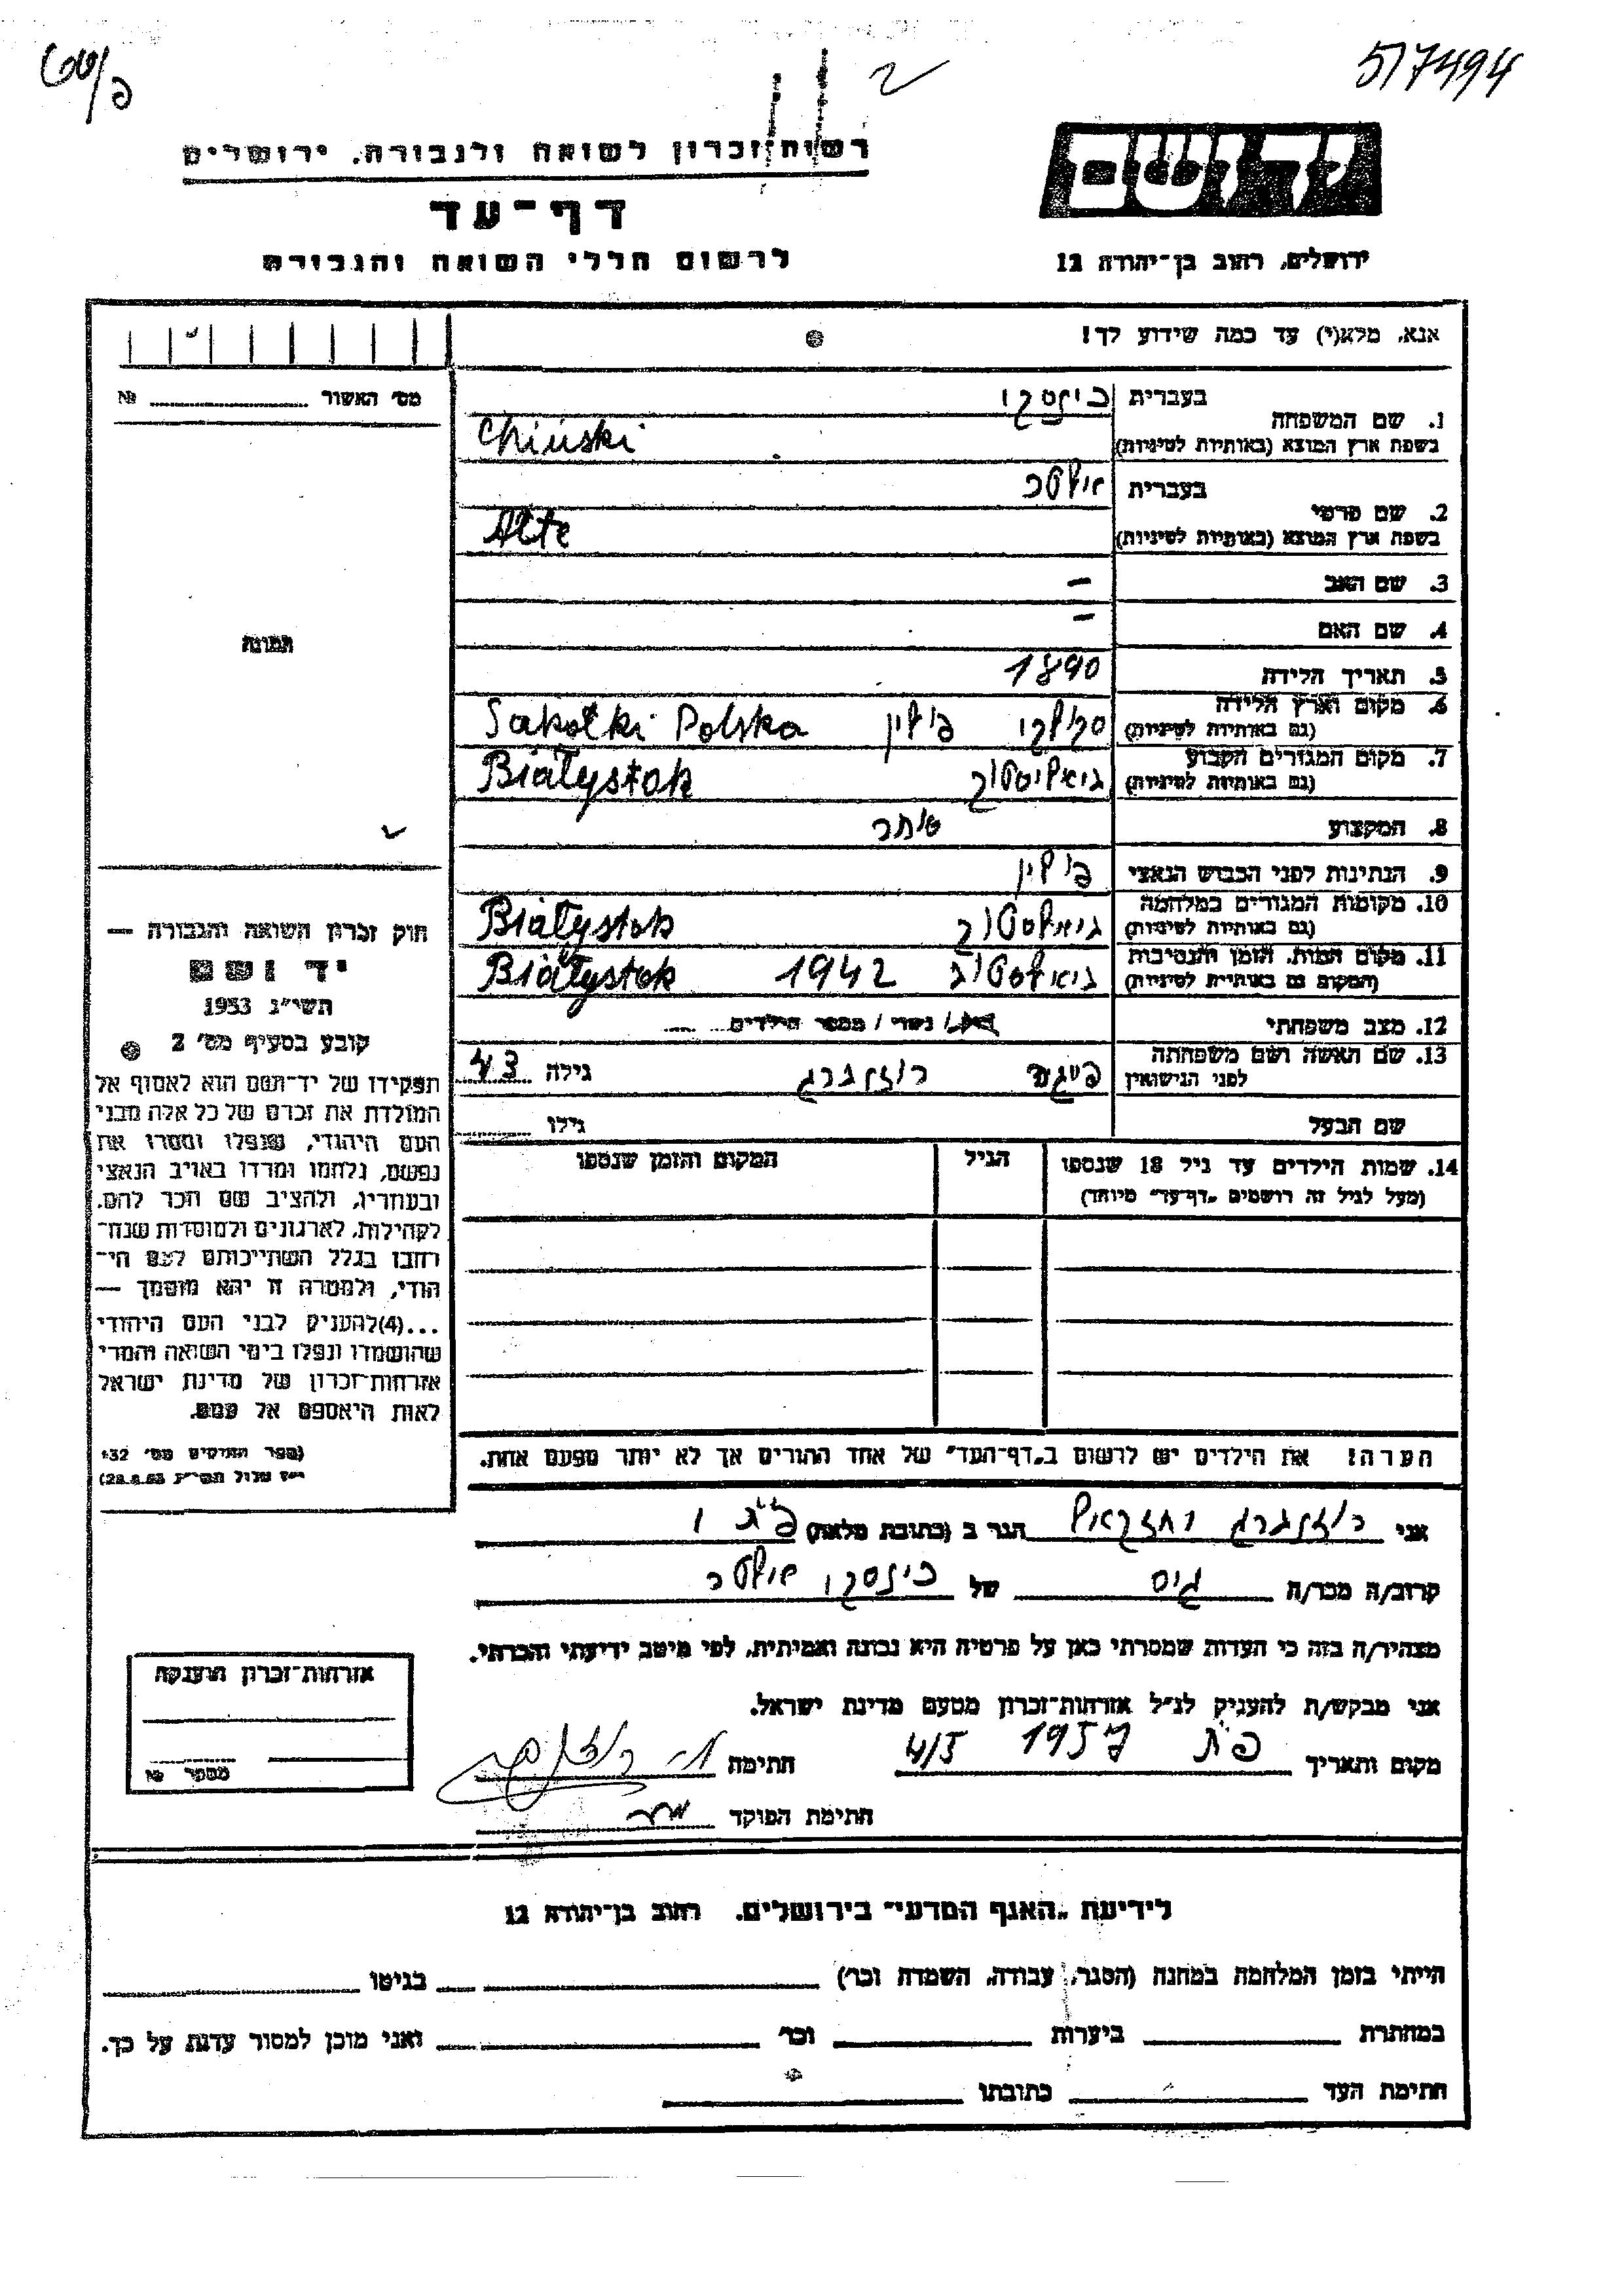 517494
רשות זכרון לשואה ולגבורה, ירושלים
דף־עד
לרשום חללי השואה והגבורה
יד ושם
ירושלים, רחוב בן־יהודה 12
אנא, מלא(י) עד כמה שידוע לך!
מס׳ האשור № 
1. שם המשפחה
בעברית
בשפת ארץ המוצא (באותיות לטיניות) Chiński
2. שם פרטי
בעברית
בשפת ארץ המוצא (באותיות לטיניות) Alte
3. שם האב –
4. שם האם –
5. תאריך הלידה 1890
6. מקום וארץ הלידה
(גם באותיות לטיניות) פולין Sakołki Polska
7. מקום המגורים הקבוע
(גם באותיות לטיניות) ביאליסטוק Białystok
8. המקצוע סוחר
9. הנתינות לפני הכבוש הנאצי פולין
10. מקומות המגורים במלחמה
(גם באותיות לטיניות) ביאלסטוק Białystok
11. מקום המות, הזמן והנסיבות
(המקום גם באותיות לטיניות) ביאלסטוק 1942 Białystok
12. מצב משפחתי רווק / נשוי / מספר הילדים
13. שם האשה ושם משפחתה
לפני הנישואין רוזנברג גילה 43
שם הבעל גילו
14. שמות הילדים עד גיל 18 שנספו הגיל המקום והזמן שנספו
(מעל לגיל זה רושמים „דף־עד״ מיוחד)
הערה! את הילדים יש לרשום ב„דף־העד״ של אחד ההורים אך לא יותר מפעם אחת.
תמונה
חוק זכרון השואה והגבורה —
יד ושם
תשי״ג 1953
קובע בסעיף מס׳ 2
תפקידו של יד־ושם הוא לאסוף אל
המולדת את זכרם של כל אלה מבני
העם היהודי, שנפלו ומסרו את
נפשם, נלחמו ומרדו באויב הנאצי
ובעוזריו, ולהציב שם וזכר להם,
לקהילות, לארגונים ולמוסדות שנח־
רבו בגלל השתייכותם לעם הי־
הודי, ולמטרה זו יהא מוסמך —
...(4) להעניק לבני העם היהודי
שהושמדו ונפלו בימי השואה והמרי
אזרחות־זכרון של מדינת ישראל
לאות היאספם אל עמם.
(ספר החוקים מס׳ 132
י״ז אלול תשי״ג 28.8.53)
אני רוזנברג יחזקאל הגר ב (כתובת מלאה) פ״ת
קרוב/ה מכר/ה גיס של
מצהיר/ה בזה כי העדות שמסרתי כאן על פרטיה היא נכונה ואמיתית, לפי מיטב ידיעתי והכרתי.
אני מבקש/ת להעניק לנ״ל אזרחות־זכרון מטעם מדינת ישראל.
מקום ותאריך פ״ת 1957 4/5 חתימה
חתימת הפוקד
אזרחות־זכרון הוענקה
מספר №
לידיעת „האגף המדעי״ בירושלים, רחוב בן־יהודה 12
הייתי בזמן המלחמה במחנה (הסגר, עבודה, השמדה וכו׳) בגיטו
במחתרת ביערות וכו׳ ואני מוכן למסור עדות על כך.
חתימת העד כתובתו